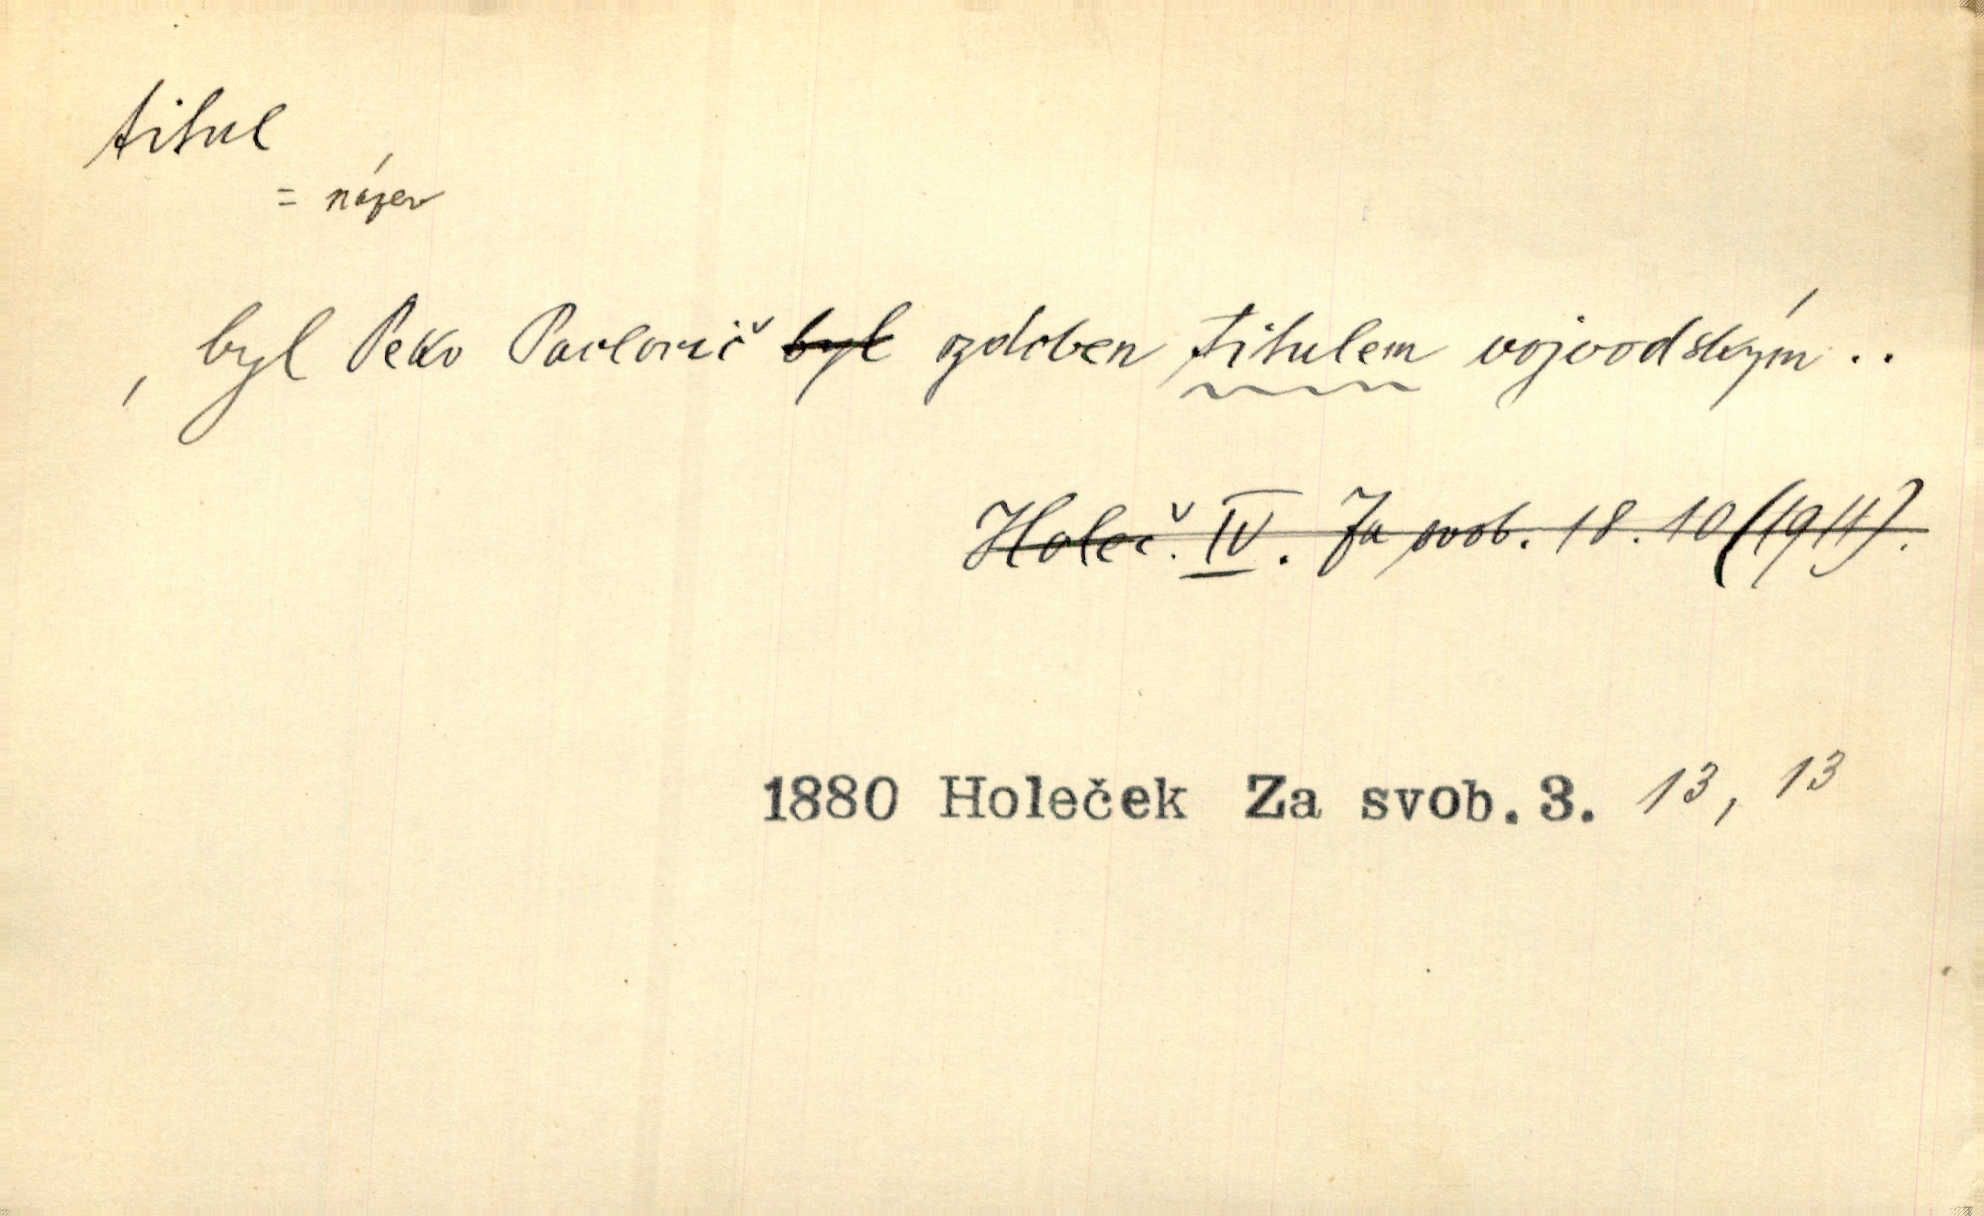 titul
= název
, byl Peko Pavlovič byl ozdoben titulem vojvodským ..
Holeč. IV. Za svob. 18. 10 (1911).
1880 Holeček Za svob. 3. 13, 13